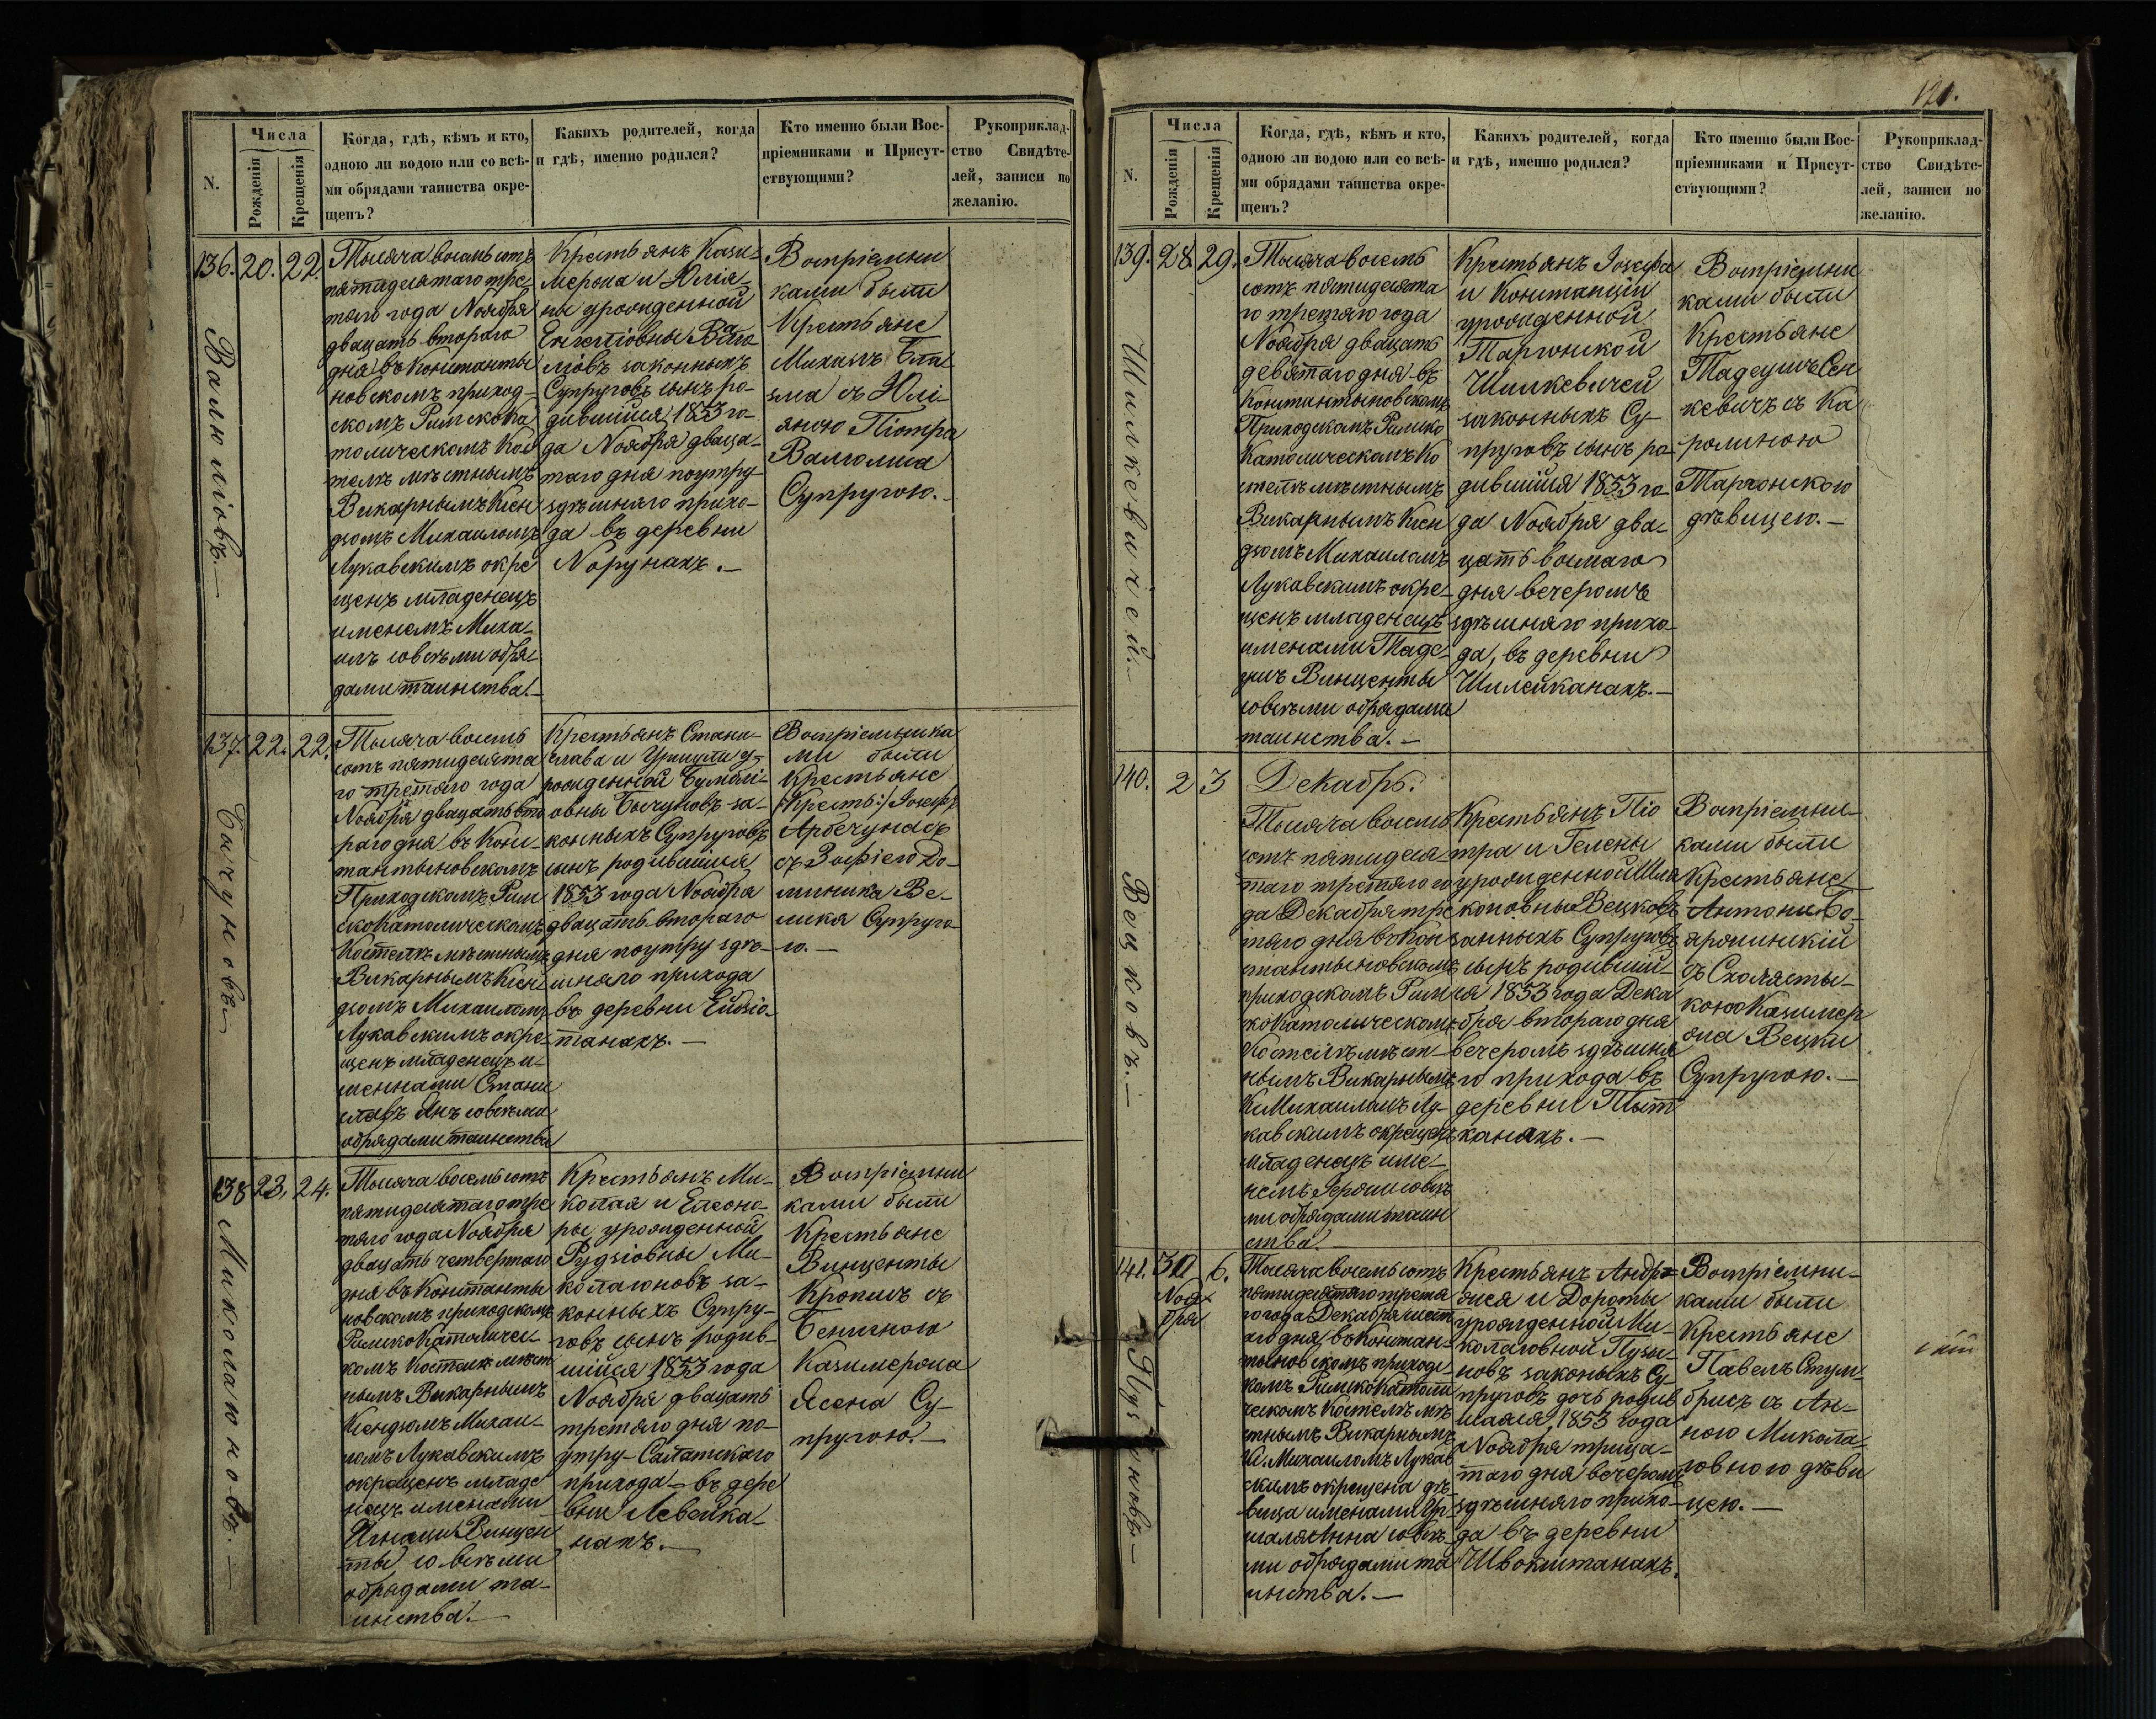 N.
Числа
Рожденія
Крещенія
Когда, гдѣ, кѣмъ и кто,
одною ли водою или со всѣ-
ми обрядами таинства окре-
щенъ?
Какихъ родителей, когда
и гдѣ, именно родился?
Кто именно были Вос-
пріемниками и Присут-
ствующими?
Рукоприклад-
ство Свидѣте-
лей, записи по
желанію.
136. 20. 22.
Валюліовъ.—
Тысяча восемьсотъ
пятидесятаго тре-
тяго года Ноября
двацать втораго
дня въ Константы
новскомъ приход-
скомъ Римскока
толическомъ Кос
телѣ мѣстнымъ
Викарнымъ Ксен
дзомъ Михаиломъ
Лукавскимъ окре
щенъ младенецъ
именемъ Миха-
илъ совсѣми обря-
дами таинства.—
Крестьянъ Кази-
мероиа и Юлія-
ны урожденной
ліовъ законныхъ
Супруговъ сынъ ро-
дившійся 1853 го-
да Ноября дваца-
таго дня поутру
здѣшняго прихо-
да въ деревни
Норунахъ.—
Воспріемни
ками были
Крестьяне
Михаилъ
зма съ Юлі-
яною Піотра
Валюлиса
Супругою.—
137. 22. 22.
Бычуновъ
Тысяча восемь
сотъ пятидесята
го третяго года
Ноября двацать вто
раго дня въ Конс-
тантыновскомъ
Приходскомъ Рим
скокатолическомъ
Костелѣ мѣстнымъ
Викарнымъ Ксен
дзомъ Михаиломъ
Лукавскимъ окре-
щенъ младенецъ и-
меннами Стани
славъ Янъ совсѣми
обрядами таинства
Крестьянъ Стани-
слава и Уршули у-
рожденной
овны Бычуновъ за-
конныхъ Супруговъ
сынъ родившійся
1853 года Ноября
двацать втораго
дня поутру здѣ-
шняго прихода
въ деревни
танахъ.—
Воспріемника
ми были
Крестьяне
Іосифъ
съ Зофіею До-
миника Ве-
лика Супруго
ю.—
138 23. 24.
Миколаюновъ.—
Тысяча восемьсотъ
пятидесятаго тре
тяго года Ноября
двацать четвертаго
дня въ Константы
новскомъ приходскомъ
РимскоКатоличес-
комъ Костелѣ мѣст
нымъ Викарнымъ
Ксендзомъ Михаи-
ломъ Лукавскимъ
окрещенъ младе
нецъ именами
Игнацы Винцен
ты совсѣми
обрядами та-
инства.—
Крестьянъ Ми-
колая и Елеоно-
ры урожденной
Рудзіовны Ми-
колаюновъ за-
конныхъ Супру-
говъ сынъ родив-
шійся 1853 года
Ноября двацать
третяго дня по-
утру Салатскаго
прихода въ дере
вни Левейка-
нахъ.—
Воспріемни
ками были
Крестьяне
Винценты
Крописъ съ
Бенигною
Казимероиа
Ясена Су-
пругою.—
121.
N.
Числа
Рожденія
Крещенія
Когда, гдѣ, кѣмъ и кто,
одною ли водою или со всѣ-
ми обрядами таинства окре-
щенъ?
Какихъ родителей, когда
и гдѣ, именно родился?
Кто именно были Вос-
пріемниками и Присут-
ствующими?
Рукоприклад-
ство Свидѣте-
лей, записи по
желанію.
139. 28. 29.
Шилкевичей.—
Тысяча восемь
сотъ пятидесята
го третяго года
Ноября двацать
девятаго дня въ
Константыновскомъ
Приходскомъ Римско
Католическомъ Ко
стелѣ мѣстнымъ
Викарнымъ Ксен
дзомъ Михаиломъ
Лукавскимъ окре-
щенъ младенецъ
именами Таде-
ушъ Винценты
совсѣми обрядами
таинства.—
Крестьянъ Іосефа
и Констанціи
урожденной
Таргонской
Шилкевичей
законныхъ Су-
пруговъ сынъ ро-
дившійся 1853 го-
да Ноября два-
цать восмаго
дня вечеромъ
здѣшняго прихо-
да, въ деревни
Шилейканахъ.—
Воспріемни
ками были
Крестьяне
Тадеушъ Сен
кевичъ съ Ка
ролиною
Таргонскою
дѣвицею.—
140. 2 3
Вецковъ.—
Декабрь.
Тысяча восемь
сотъ пятидеся-
таго третяго го
да Декабря тре
тяго дня въ Кон
стантыновскомъ
приходскомъ Рим
скоКатолическомъ
Костелѣ мѣст-
нымъ Викарнымъ
К. Михаиломъ Лу-
кавскимъ окрещенъ
младенецъ име-
немъ Геронимъ совсѣ
ми обрядами таин
ства.—
Крестьянъ Піо
тра и Гелены
урожденной
коновны Вецковъ
занныхъ Супруговъ
сынъ родивший-
ся 1853 года Дека
бря втораго дня
вечеромъ здѣшня
го прихода въ
деревни Пыт
канахъ.—
Воспріемни-
ками были
Крестьяне
Антони Бо-
ярошискій
съ Схоласты-
кою Казимер
оиа Вецки
Супругою.—
141. 30 6.
Ноя-
бря
Пузыновъ.—
Тысяча восемьсотъ
пятидесятаго третя
го года Декабря шест
аго дня въ Констан-
тыновскомъ приходс-
комъ РимскоКатоли
ческомъ Костелѣ мѣ
стнымъ Викарнымъ
К. Михаиломъ Лукав
скимъ окрещена дѣ-
вица именами Ур-
шуля Анна совсѣ-
ми обрядами та
инства.—
Крестьянъ Андрэ-
яися и Дороты
урожденной Ми-
колаювной Пузы-
новъ законныхъ Су-
пруговъ дочь родив
шаяся 1853 года
Ноября трица-
таго дня вечеромъ
здѣшняго прихо-
да въ деревни
Швокштанахъ.
Воспріемни-
ками были
Крестьяне
Павелъ Стум-
брисъ съ Ан-
ною Микола-
ювною дѣви
цею.—